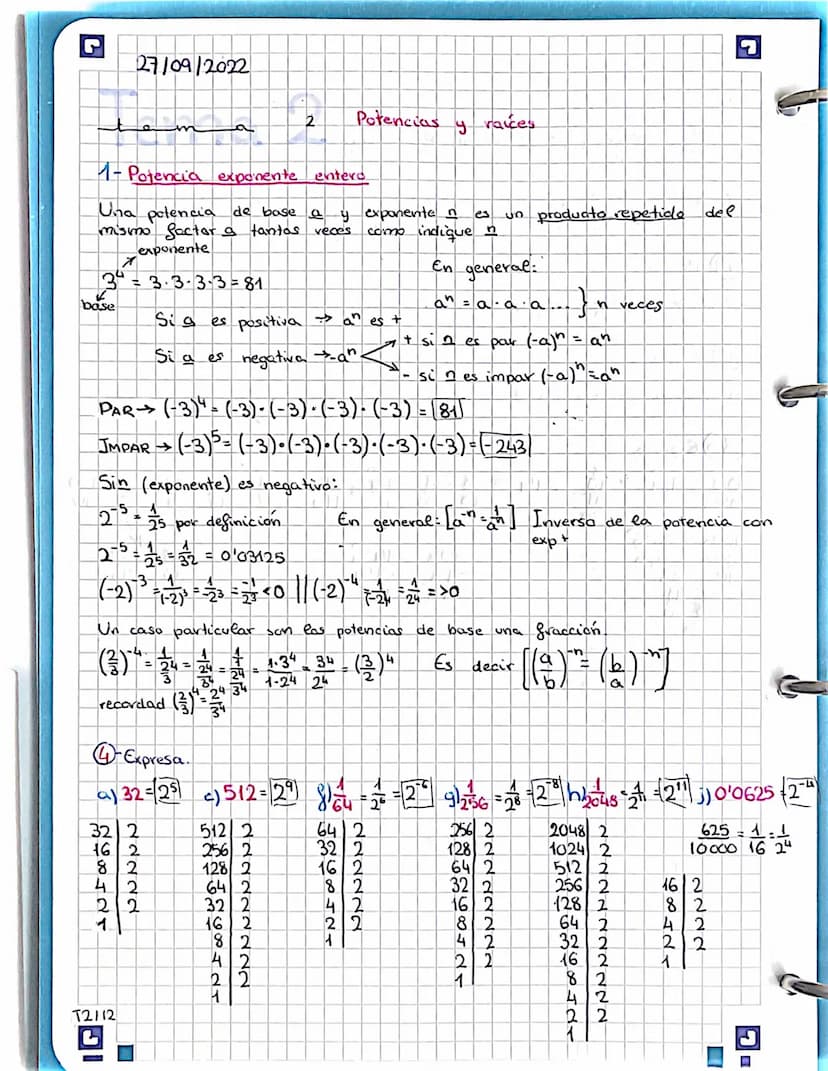 27/09/2022
Tema 2
tema 2 Potencias y raíces
1- Potencia exponente entero
Una potencia de base a y exponente n es un producto repetido del
mismo factor a tantas veces como indique n
exponente
3⁴ = 3·3·3·3 = 81
base
En general:
aⁿ = a·a·a... } n veces
Si a es positiva → aⁿ es +
Si a es negativa → -aⁿ
+ si n es par (-a)ⁿ = aⁿ
- si n es impar (-a)ⁿ = aⁿ
PAR → (-3)⁴ = (-3)·(-3)·(-3)·(-3) = 81
IMPAR → (-3)⁵ = (-3)·(-3)·(-3)·(-3)·(-3) = -243
Sin (exponente) es negativo:
2⁻⁵ = 1/2⁵ por definición En general: [a⁻ⁿ = 1/aⁿ] Inverso de la potencia con
exp +
2⁻⁵ = 1/2⁵ = 1/32 = 0'03125
(-2)⁻³ = 1/(-2)³ = 1/-2³ = -1/2³ < 0 || (-2)⁻⁴ = 1/(-2)⁴ = 1/2⁴ = > 0
Un caso particular son las potencias de base una fracción.
(2/3)⁻⁴ = 1/(2/3)⁴ = 1/(2⁴/3⁴) = (1/1)/(2⁴/3⁴) = 1·3⁴/1·2⁴ = 3⁴/2⁴ = (3/2)⁴ Es decir [(a/b)⁻ⁿ = (b/a)⁻ⁿ]
recordad (2/3)⁴ = 2⁴/3⁴
④-Expresa.
a) 32 = 2⁵ c) 512 = 2⁹ f) 1/64 = 1/2⁶ = 2⁻⁶ g) 1/256 = 1/2⁸ = 2⁻⁸ h) 1/2048 = 1/2¹¹ = 2¹¹ j) 0'0625 = 2⁻⁴
32 | 2
16 | 2
8 | 2
4 | 2
2 | 2
1
512 | 2
256 | 2
128 | 2
64 | 2
32 | 2
16 | 2
8 | 2
4 | 2
2 | 2
1
64 | 2
32 | 2
16 | 2
8 | 2
4 | 2
2 | 2
1
256 | 2
128 | 2
64 | 2
32 | 2
16 | 2
8 | 2
4 | 2
2 | 2
1
2048 | 2
1024 | 2
512 | 2
256 | 2
128 | 2
64 | 2
32 | 2
16 | 2
8 | 2
4 | 2
2 | 2
1
625/10000 = 1/16 = 1/2⁴
16 | 2
8 | 2
4 | 2
2 | 2
1
T2112